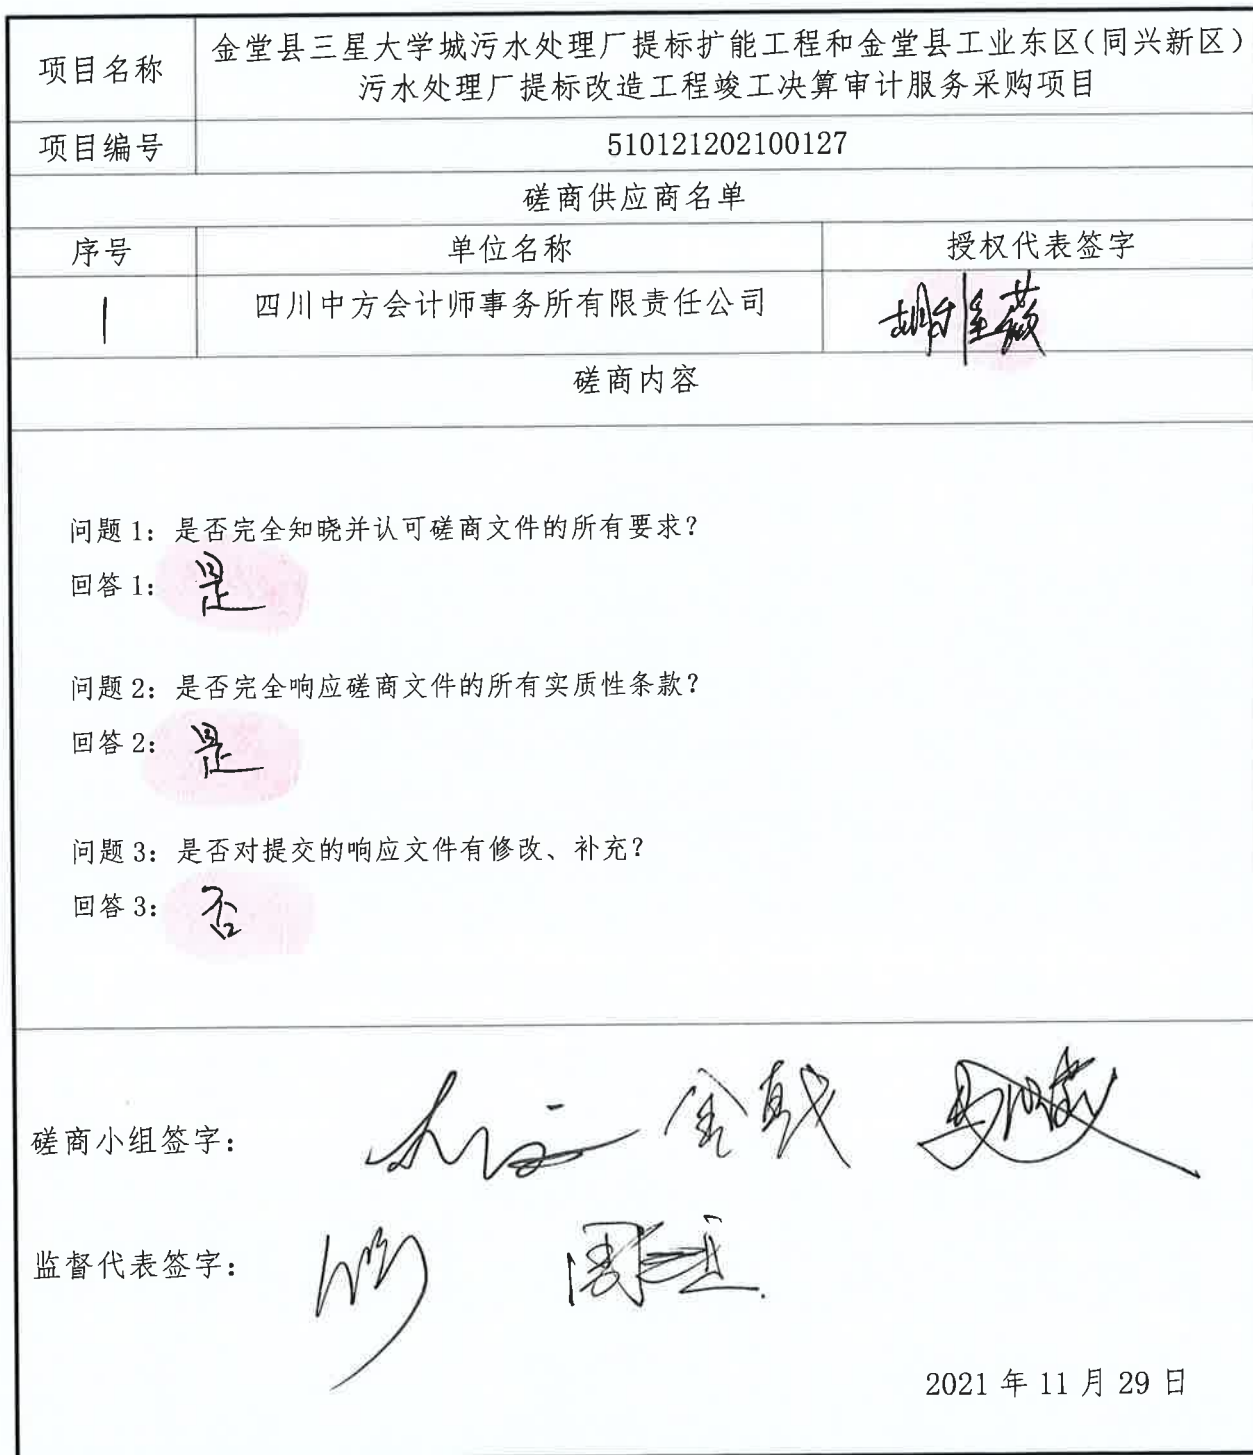 项目名称
金堂县三星大学城污水处理厂提标扩能工程和金堂县工业东区(同兴新区)
污水处理厂提标改造工程竣工决算审计服务采购项目
项目编号
510121202100127
磋商供应商名单
序号 单位名称 授权代表签字
1 四川中方会计师事务所有限责任公司
磋商内容
问题1：是否完全知晓并认可磋商文件的所有要求？
回答1：是
问题2：是否完全响应磋商文件的所有实质性条款？
回答2：是
问题3：是否对提交的响应文件有修改、补充？
回答3：否
磋商小组签字：
监督代表签字：
2021年11月29日